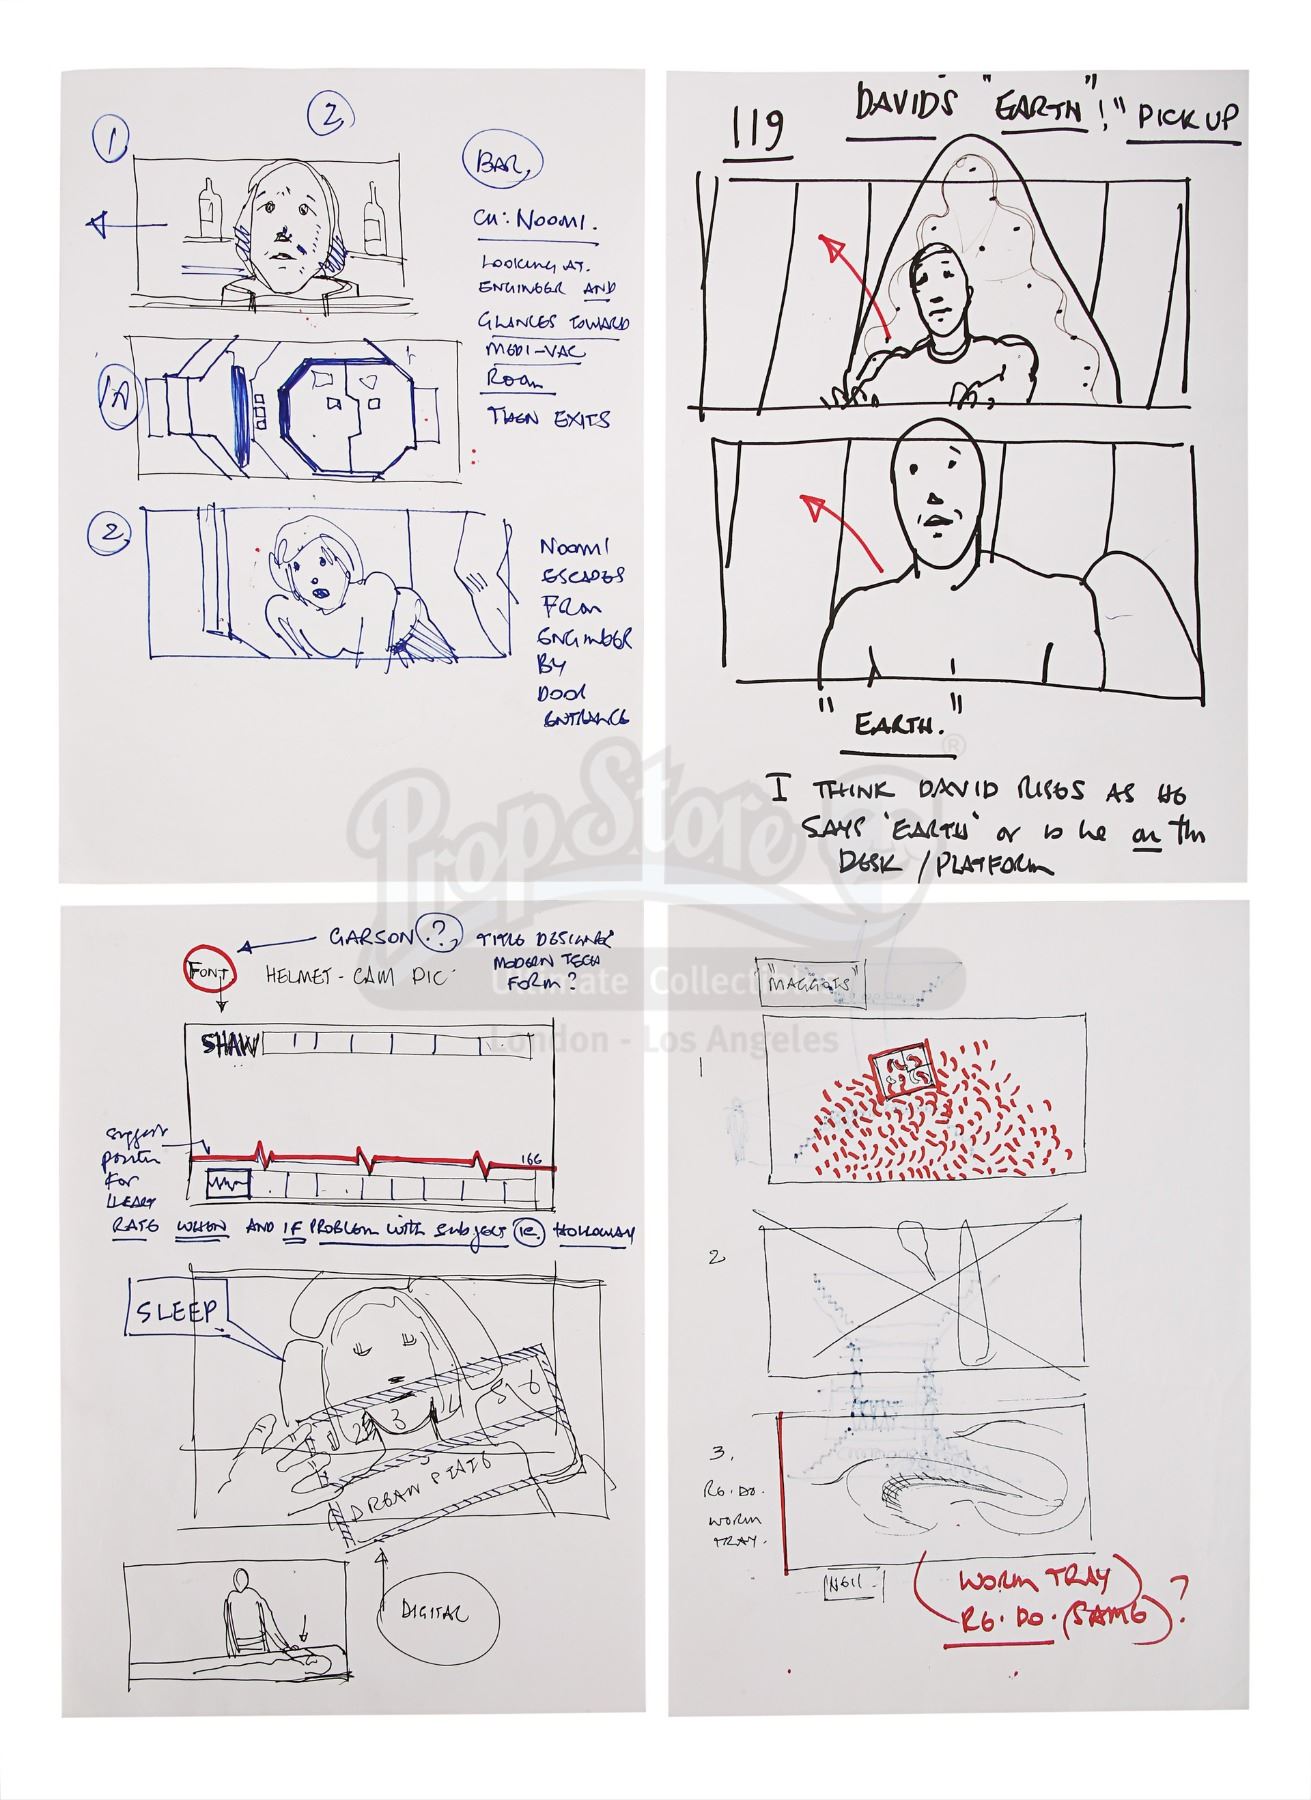 2
1
BAR,
CU: NOOMI.
LOOKING AT.
ENGINEER AND
GLANCES TOWARD
MEDI-VAC
ROOM
THEN EXITS
1A
2
NOOMI
ESCAPES
FROM
ENGINEER
BY
DOOR
ENTRANCE
119
DAVIDS "EARTH"!" PICK UP
"EARTH."
I THINK DAVID RISES AS HE
SAYS 'EARTH' or is he on the
DESK / PLATFORM
PropStore ®
Ultimate Collectibles
London - Los Angeles
GARSON ?, TITLE DESIGNER
MODERN TECH
FORM?
FONT
HELMET-CAM PIC
SHAW
166
suggest
pointer
FOR
HEART
RATE WHEN AND IF PROBLEM with subject ie. HOLLOWAY
SLEEP
2 3 4 5 6
DREAM STATE
DIGITAL
"MAGGOTS"
1
2
3.
RE.DO.
WORM
TRAY.
NEIL.
WORM TRAY
RE.DO. (SAME)?